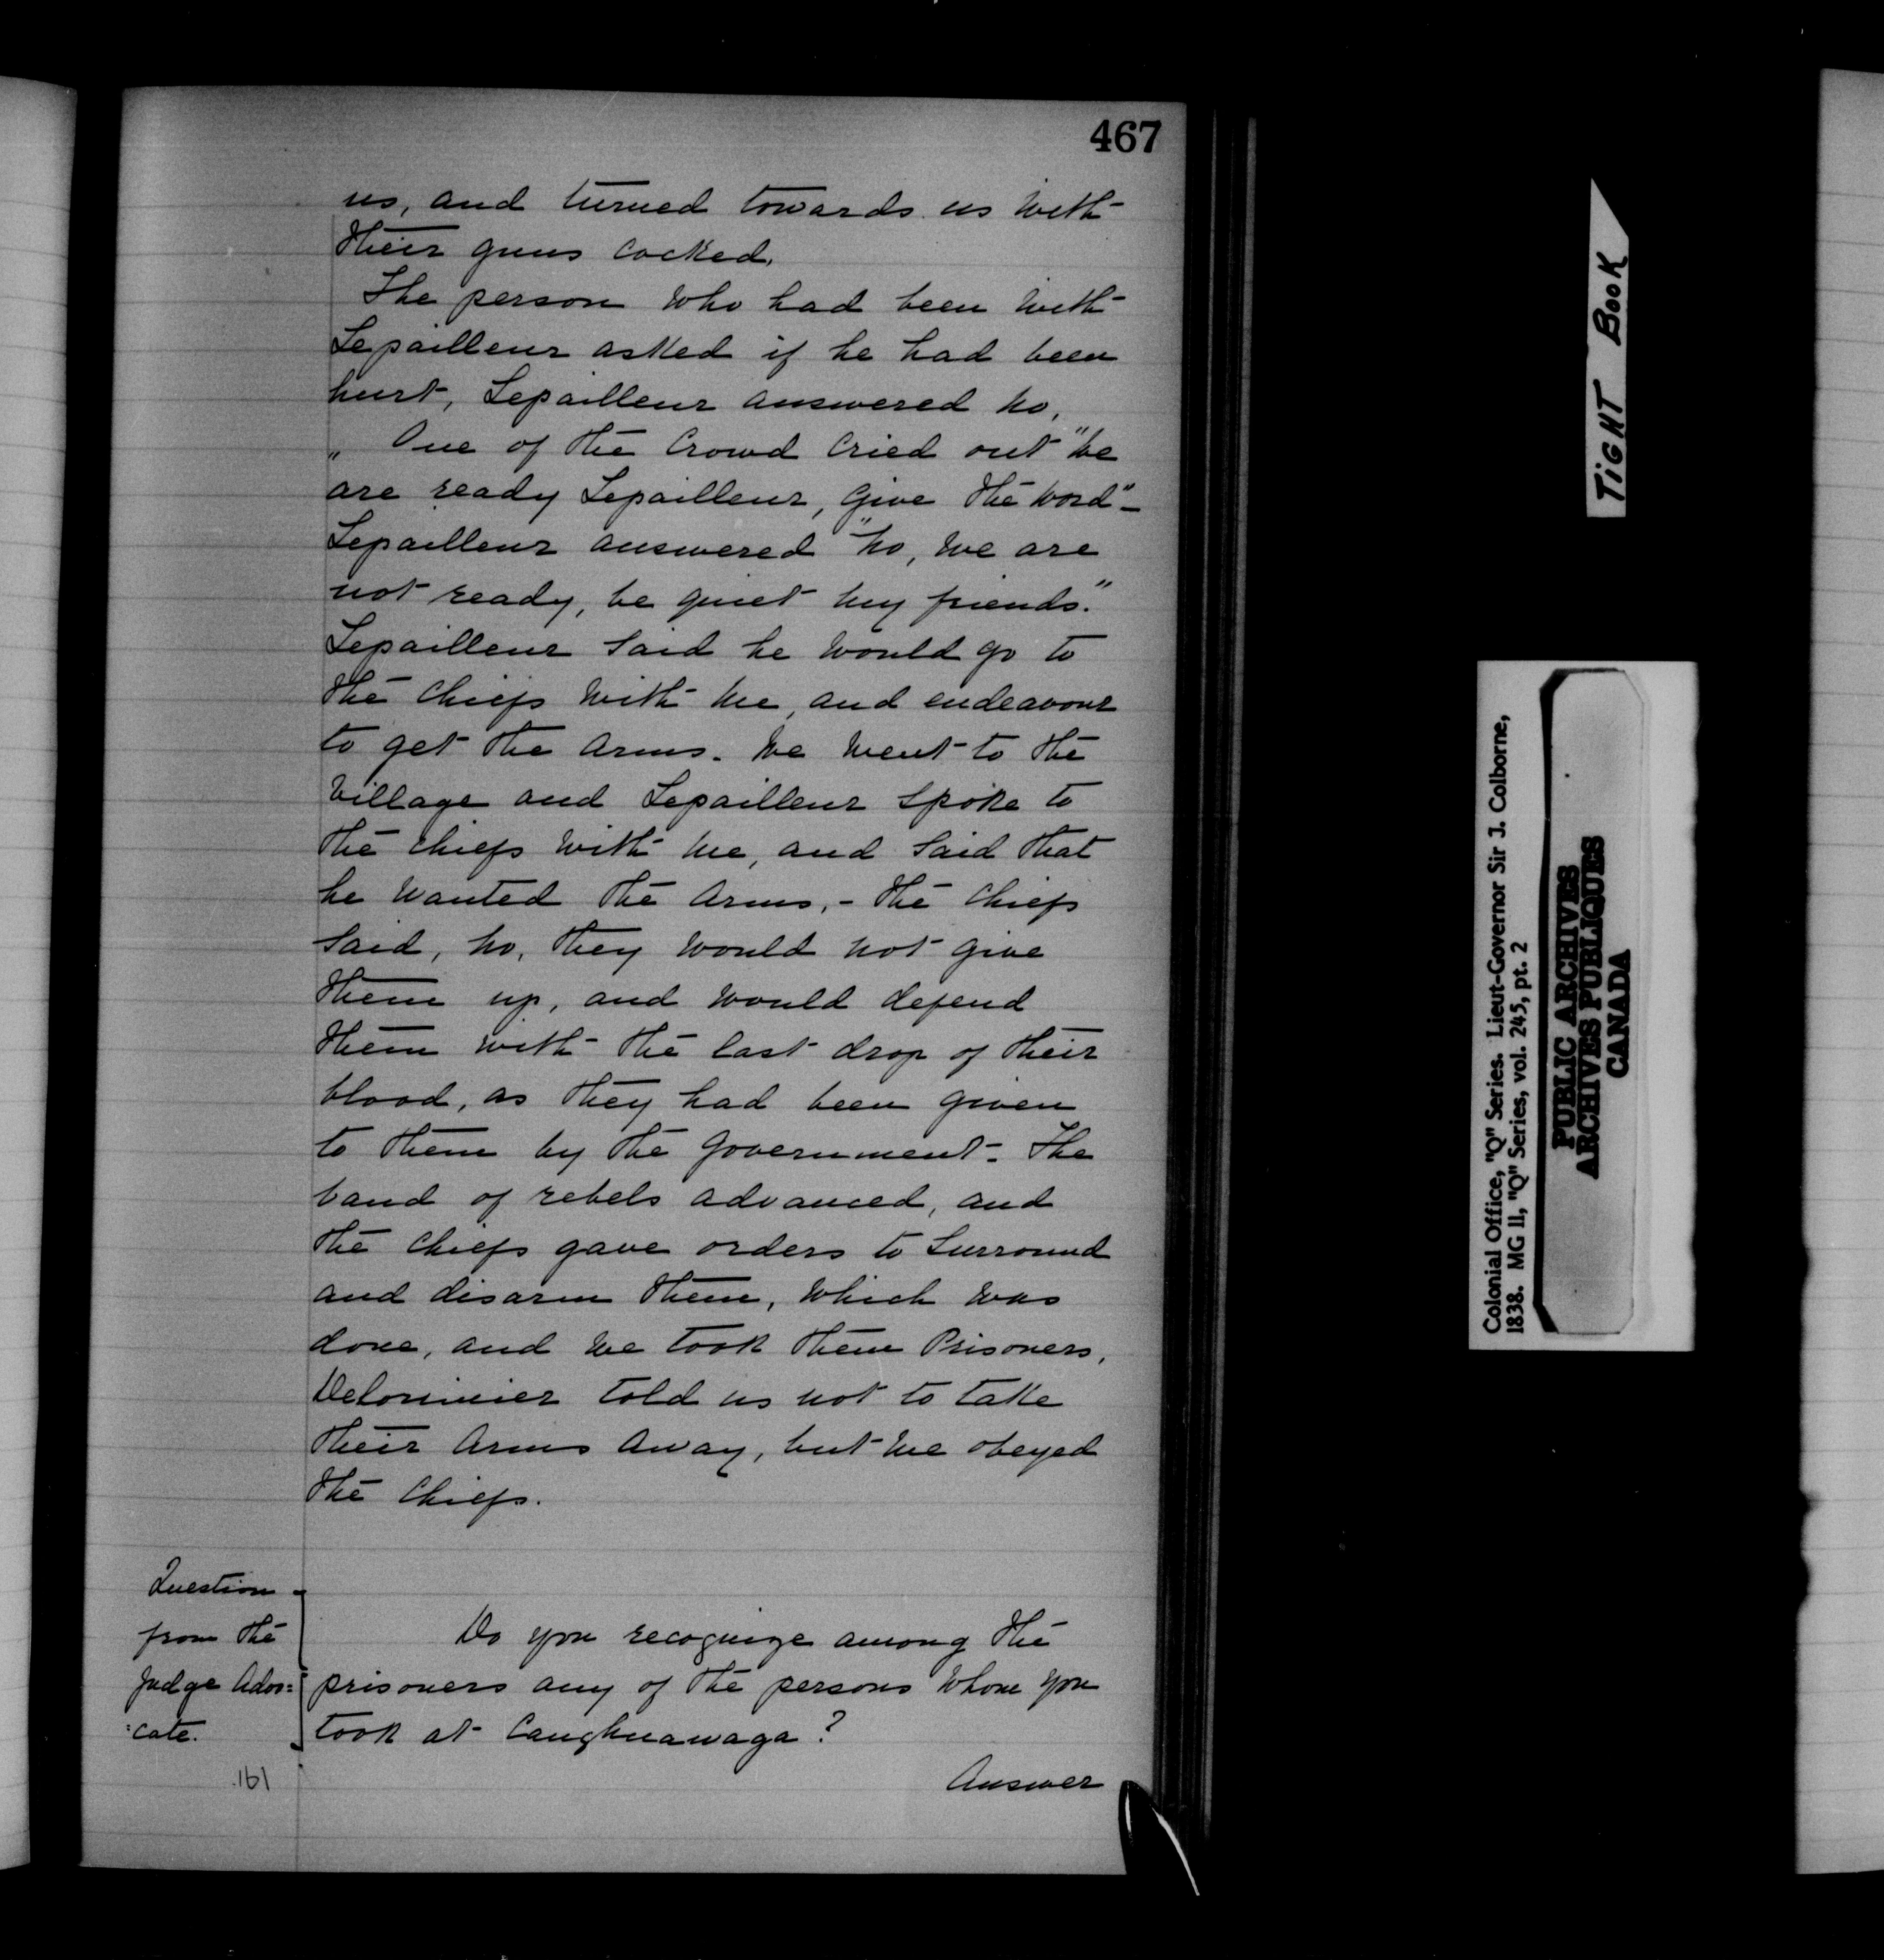 467
us, and turned towards us with
their guns cocked.
The person who had been with
Lepailleur asked if he had been
hurt, Lepailleur answered no.
„ One of the Crowd Cried out "We
are ready Lepailleur, give the word"—
Lepailleur answered "no, we are
not ready, be quiet my friends."
Lepailleur said he would go to
the Chiefs with me, and endeavour
to get the Arms. We went to the
Village and Lepailleur spoke to
the Chiefs with me, and said that
he wanted the Arms, - the Chiefs
said, no, they would not give
them up, and would defend
them with the last drop of their
blood, as they had been given
to them by the Government - The
band of rebels advanced, and
the Chiefs gave orders to surround
and disarm them, which was
done, and we took them Prisoners,
Delorimier told us not to take
their Arms Away, but we obeyed
the Chiefs.
Question
from the
Judge Advo=
=cate.
161
Do you recognize among the
prisoners any of the persons whom you
took at Caughnawaga?
Answer
TIGHT BOOK
Colonial Office, "Q" Series. Lieut-Governor Sir J. Colborne,
1838. MG 11, "Q" Series, vol. 245, pt. 2
PUBLIC ARCHIVES
ARCHIVES PUBLIQUES
CANADA